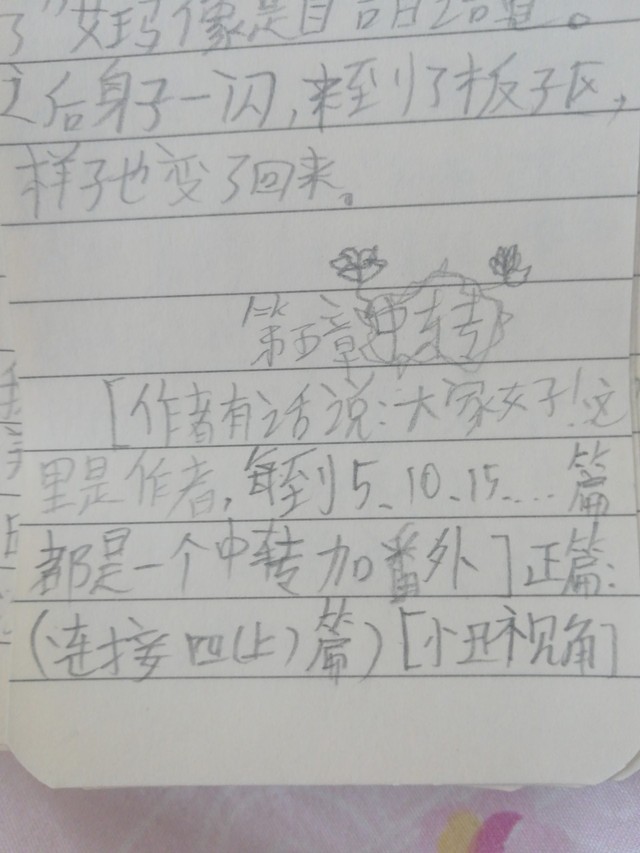 了”艾玛像是自言自语道。
之后身子一闪,来到了板子区,
样子也变了回来。
第五章中转
[作者有话说:大家好!这
里是作者,每到5、10、15....篇
都是一个中转加番外]正篇:
(连接四(上)篇)[小丑视角]